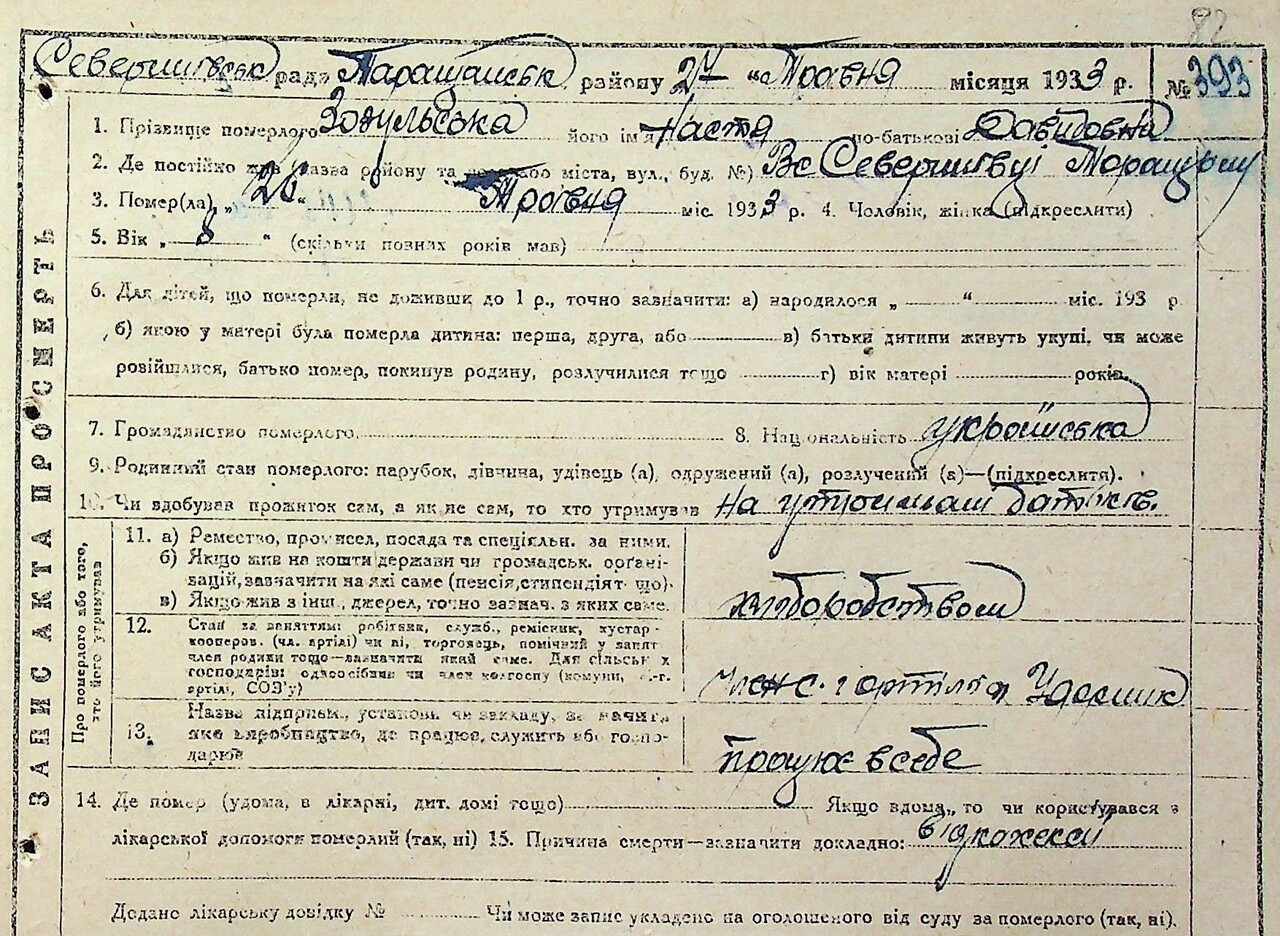 82
рада району 27 „ Травня місяця 1933 р. № 393
1. Прізвище померлого Зозульська його ім'я Настя по-батькові Давидовна
2. Де постійно жив (назва району та або міста, вул., буд. №) Вс
3. Помер(ла) „ 26 “ Травня міс. 1933 р. 4. Чоловік, жінка (підкреслити)
5. Вік „ 8 “ (скільки повних років мав)
6. Для дітей, що померли, не доживши до 1 р., точно зазначити: а) народилося „ “ міс. 193 р
б) якою у матері була померла дитина: перша, друга, або в) батьки дитини живуть укупі, чи може
розійшлися, батько помер, покинув родину, розлучилися тощо г) вік матері років.
7. Громадянство померлого 8. Національність українська
9. Родинний стан померлого: парубок, дівчина, удівець (а), одружений (а), розлучений (а)—(підкреслити).
10. Чи здобував прожиток сам, а як не сам, то хто утримував На батьків.
ЗАПИС АКТА ПРО СМЕРТЬ
Про померлого або того,
хто його утримував
11. а) Ремество, промисел, посада та спеціяльн. за ними.
б) Якщо жив на кошти держави чи громадськ. орґані-
зацій, зазначити на які саме (пенсія, стипендіят що).
в) Якщо жив з інш., джерел, точно зазнач. з яких саме.
хліборобством
12. Стан за заняттям: робітник, служб., ремісник, кустар-
кооперов. (чл. артілі) чи ні, торговець, помічний у занят.
член родини тощо—зазначити який саме. Для сільськ х
господарів: одноосібник чи член колгоспу (комуни, с.-г.
артілі, СОЗ'у)
Член с. г артілі
13. Назва підприєм., установ. чи закладу, за начити
яке виробництво, де працює, служить або госпо-
дарює
працює в себе
14. Де помер (удома, в лікарні, дит. домі тощо) Якщо вдома, то чи користувався з
лікарської допомоги померлий (так, ні) 15. Причина смерти—зазначити докладно: від
Додано лікарську довідку № Чи може запис укладено на оголошеного від суду за померлого (так, ні).